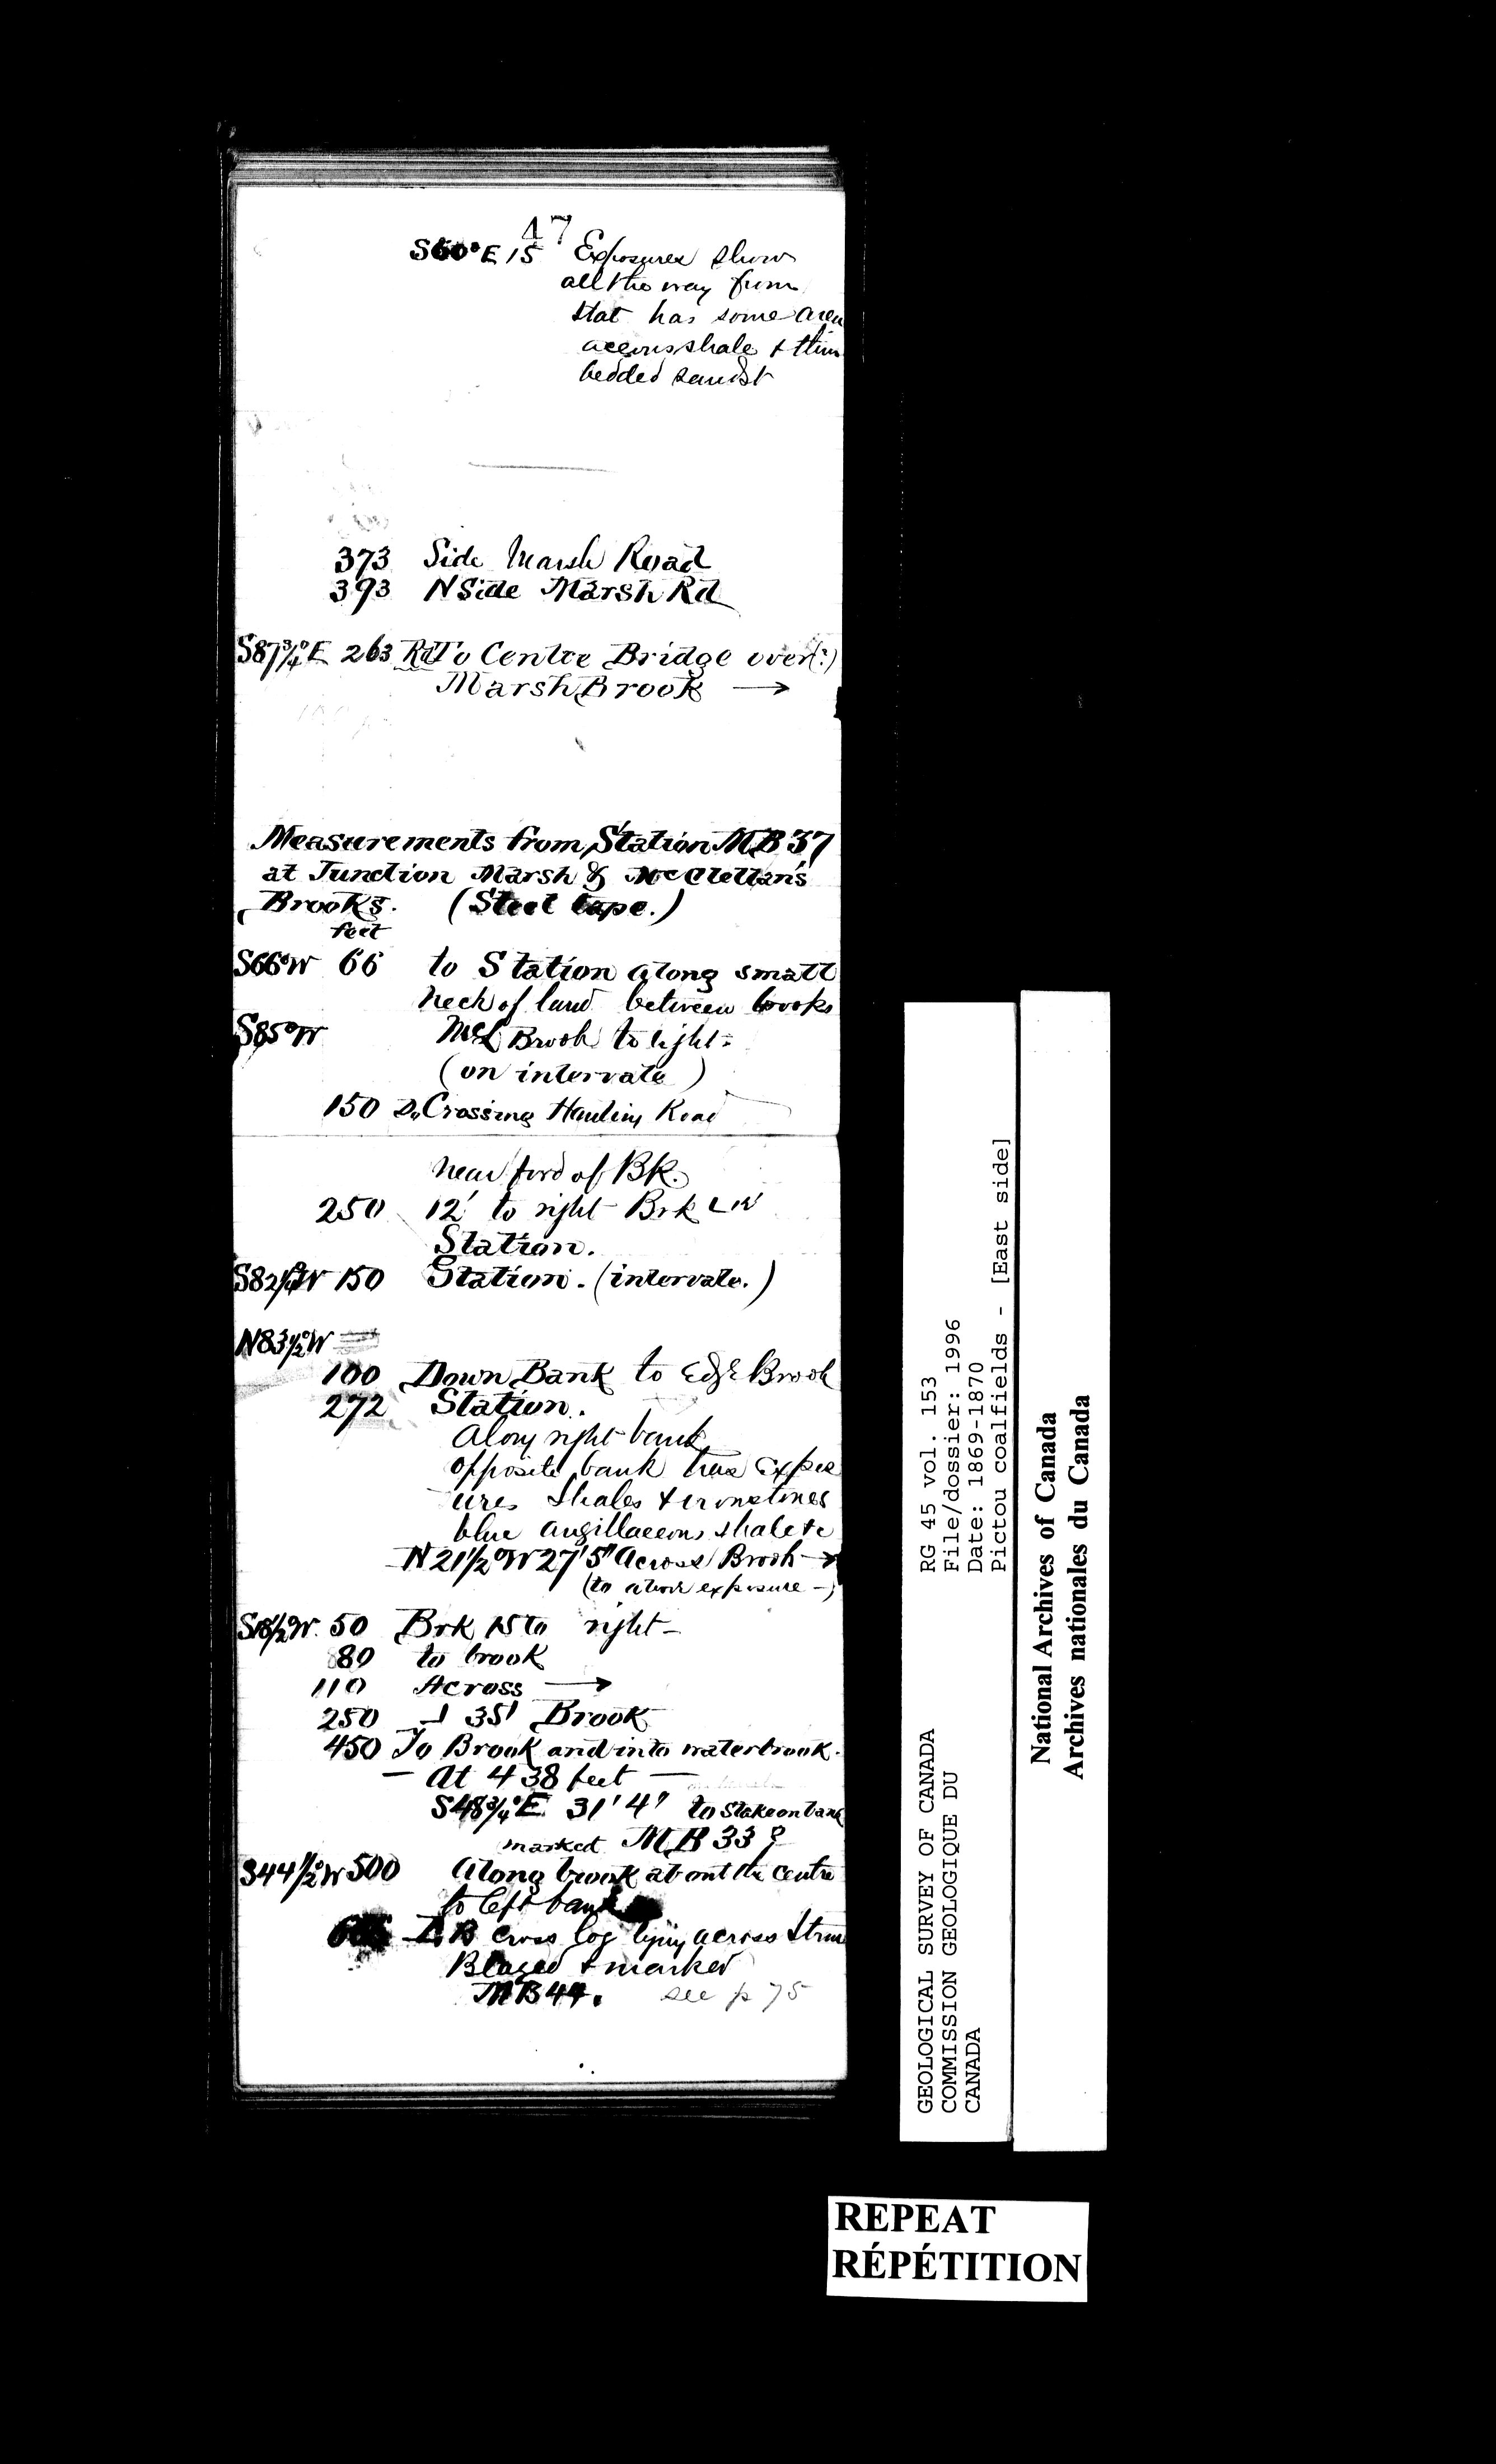 47
S60°E 15 Exposures show
all the way from
stat has some aren
aceous shale & thin
bedded sandst
373 Side Marsh Road
393 N Side Marsh Rd
S87¾°E 263 Rd To Centre Bridge over (?)
Marsh Brook →
Measurements from Station MB 37
at Junction Marsh & McClellan's
Brooks. (Steel tape.)
feet
S66°W 66 to Station along small
neck of land between brooks
S85°W McL Brook to right
(on intervale)
150 Do Crossing Hauling Road
near ford of BK.
250 12' to right Brk
Station.
S82½°W 150 Station. (intervale.)
N83½°W
100 Down Bank to Edge Brook
272 Station.
Along right bank
opposite bank has Expos
ures shales & ironstones
blue argillaceous shale &c
N21½°W 27'5" Across Brook →
(to above exposure -)
S18½°W. 50 Brk 15 to right -
80 to brook
110 Across →
250 ┘ 35' Brook
450 To Brook and into water brook.
— At 438 feet —
S48¾°E 31'4" to Stake on bank
marked MB 33 ?
S44½°W 500 Along brook about the centre
to left bank
cross log lying across Strm
Blazed & marked
MB 44. see p 75
GEOLOGICAL SURVEY OF CANADA
COMMISSION GEOLOGIQUE DU
CANADA
RG 45 vol. 153
File/dossier: 1996
Date: 1869-1870
Pictou coalfields - [East side]
National Archives of Canada
Archives nationales du Canada
REPEAT
RÉPÉTITION